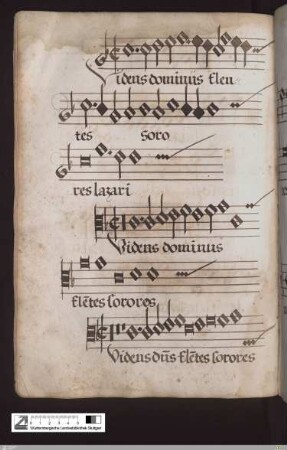 Videns dominus flen
tes soro
res lazari
Videns dominus
flētes sorores
Videns dn̄s flētes sorores
Württembergische Landesbibliothek Stuttgart